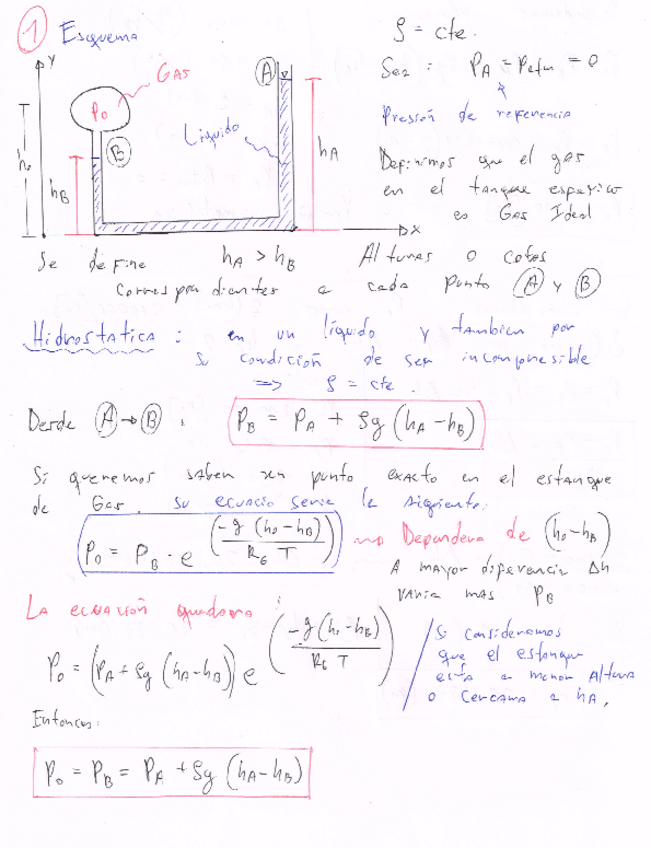 1 Esquema
ρ = cte.
Sea : PA = Patm = 0
Presión de referencia
Definimos que el gas
en el tanque esferico
es Gas Ideal
Y
GAS
P0
A
B
Liquido
h0
hB
hA
X
Se define hA > hB Alturas o cotas
correspondientes a cada punto A y B
Hidrostatica : en un líquido y tambien por
su condición de ser incompresible
=> ρ = cte.
Desde A → B : PB = PA + ρg (hA - hB)
Si queremos saber un punto exacto en el estanque
de Gas, su ecuacio seria la siguiente:
P0 = PB · e^(-g (h0 - hB) / RG T) Dependera de (h0 - hB)
A mayor diferencia Δh
varia mas PB
La ecuación quedara :
P0 = (PA + ρg (hA - hB)) e^(-g (h0 - hB) / RG T)
Si consideramos
que el estanque
esta a menor Altura
o cercana a hA.
Entonces:
P0 = PB = PA + ρg (hA - hB)